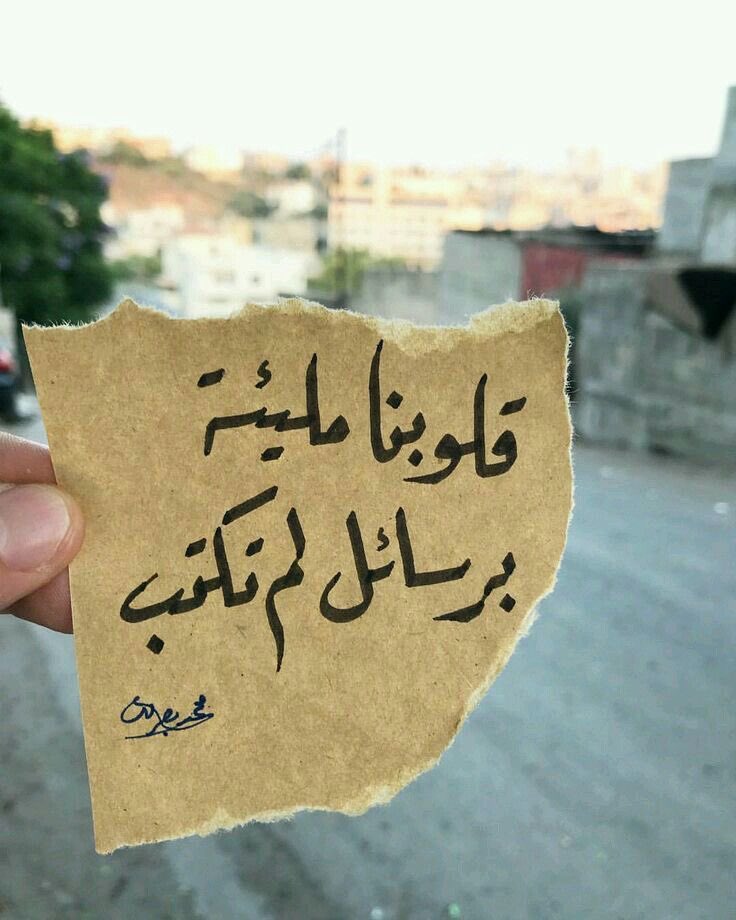 قلوبنا مليئة
برسائل لم تكتب